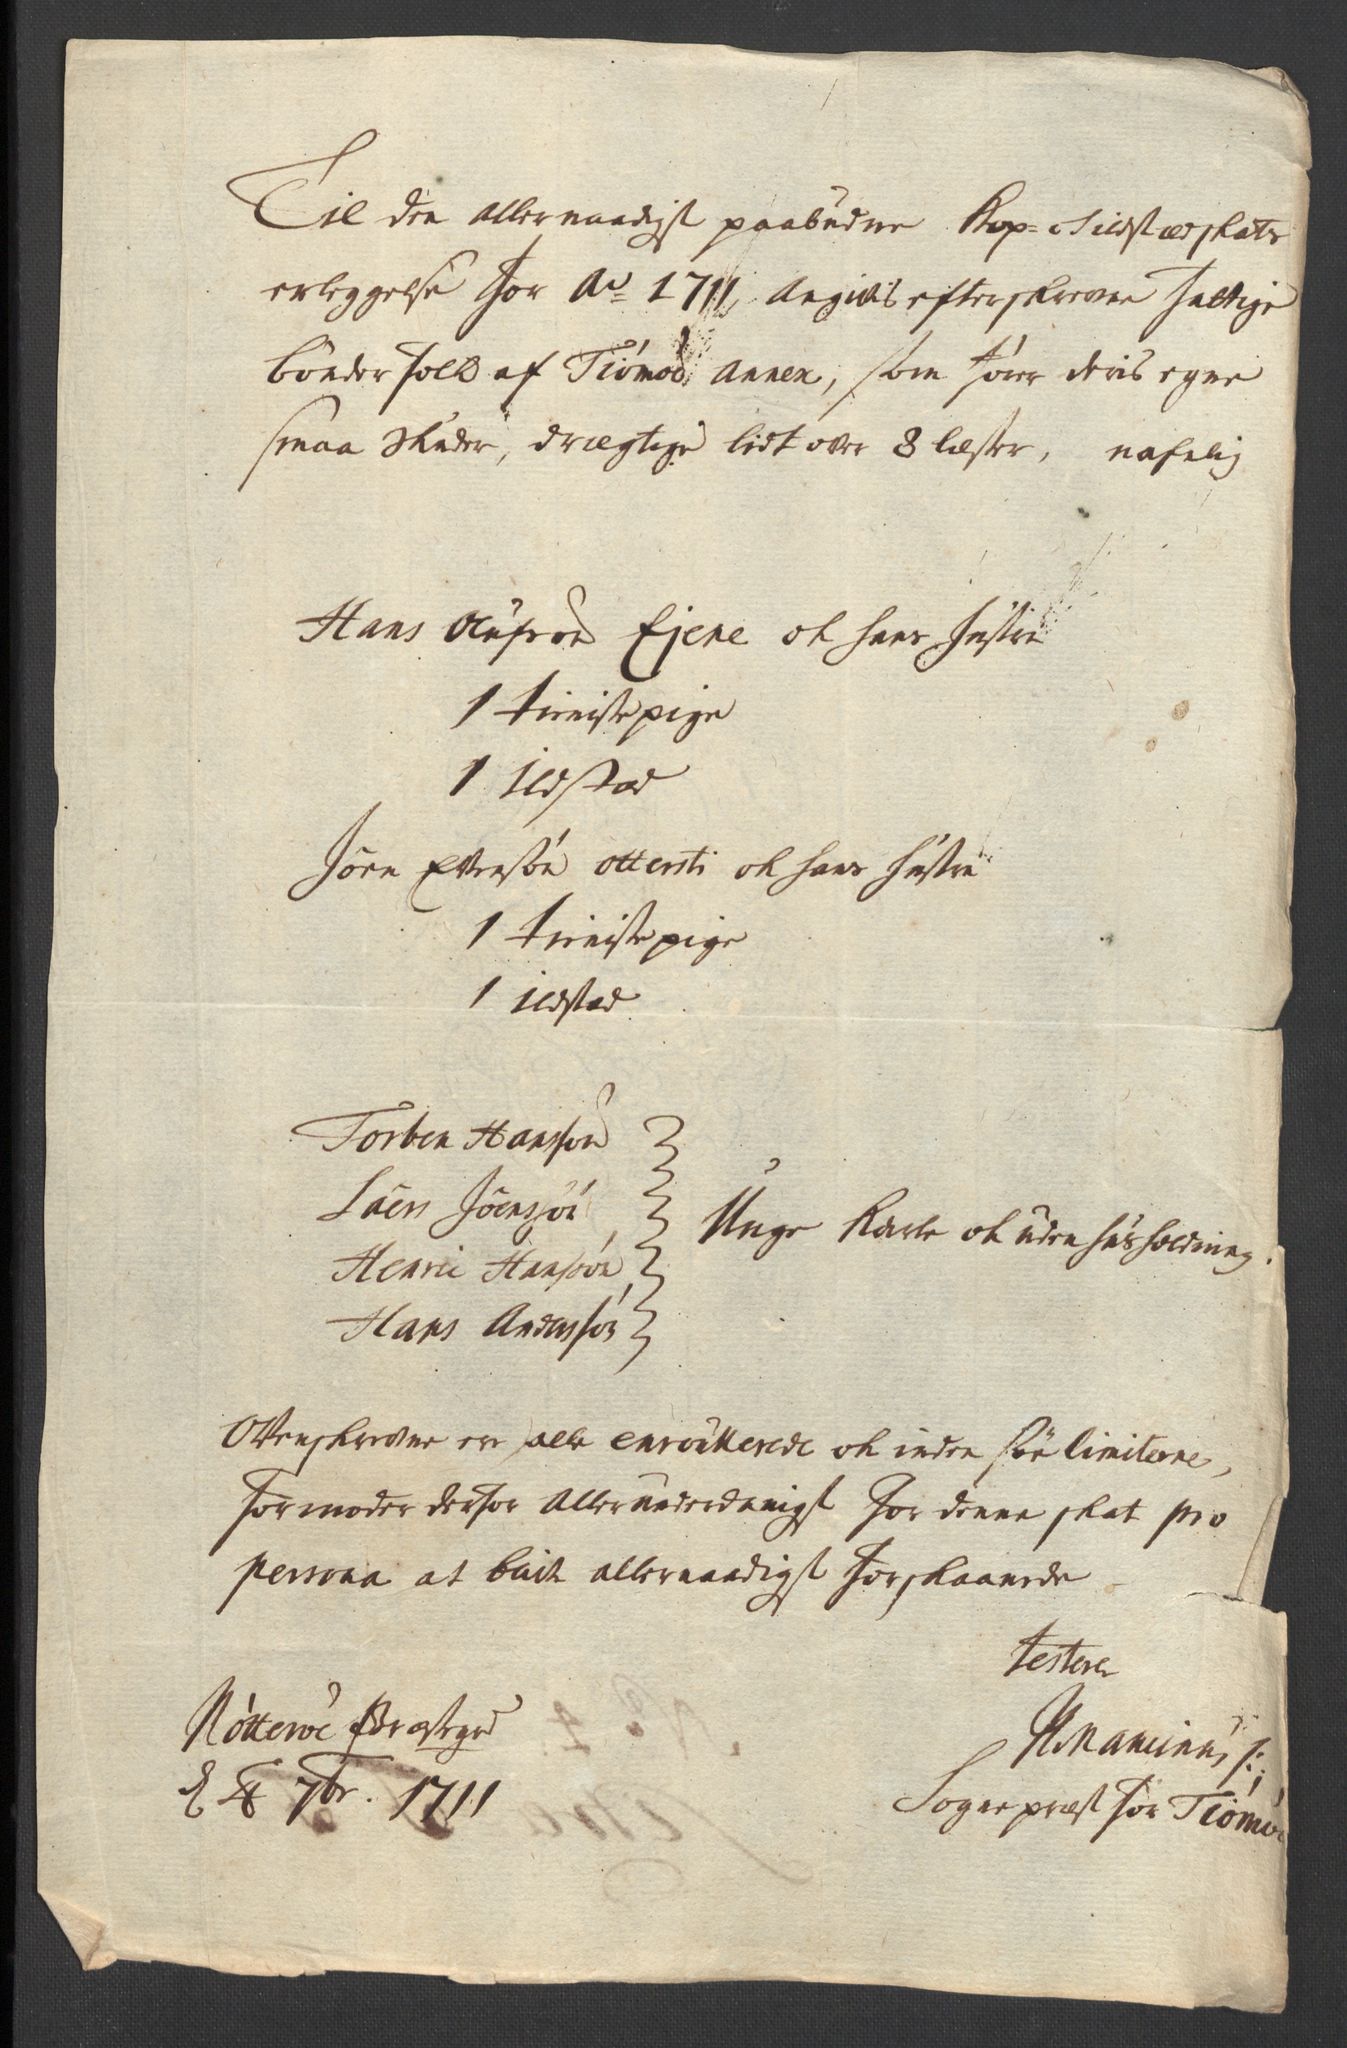 Til den allernaadigst paabudne Kop= & Ildstædskats
erleggelse for Ao 1711, Angives efterskrevne fattige
bönderfolk af Tiömöe Annex, som förer deris egne
smaa skuder, drægtige lidt over 8 læster, nafnlig
Hans Olufsön Ejene ok hans hustru
1 tienistepige
1 Ildstæd
Jörn Evensön ottersti ok hans hustru
1 tienistepige
1 ildstæd
Torben Hanssön
Lues Jöenssön
Henric Hanssön
Hans Anderssön
Unge Karle ok uden husholdning.
Ovenskrevne ere alle enroullerede ok inden söe limiterne,
formoder derfor allerunderdanigst for denne skat pro
persona at blive allernaadigst forskaanede
testerer
Nötteröe Præstegrd
d 8 7br. 1711
Sognepræst for Tiömöe